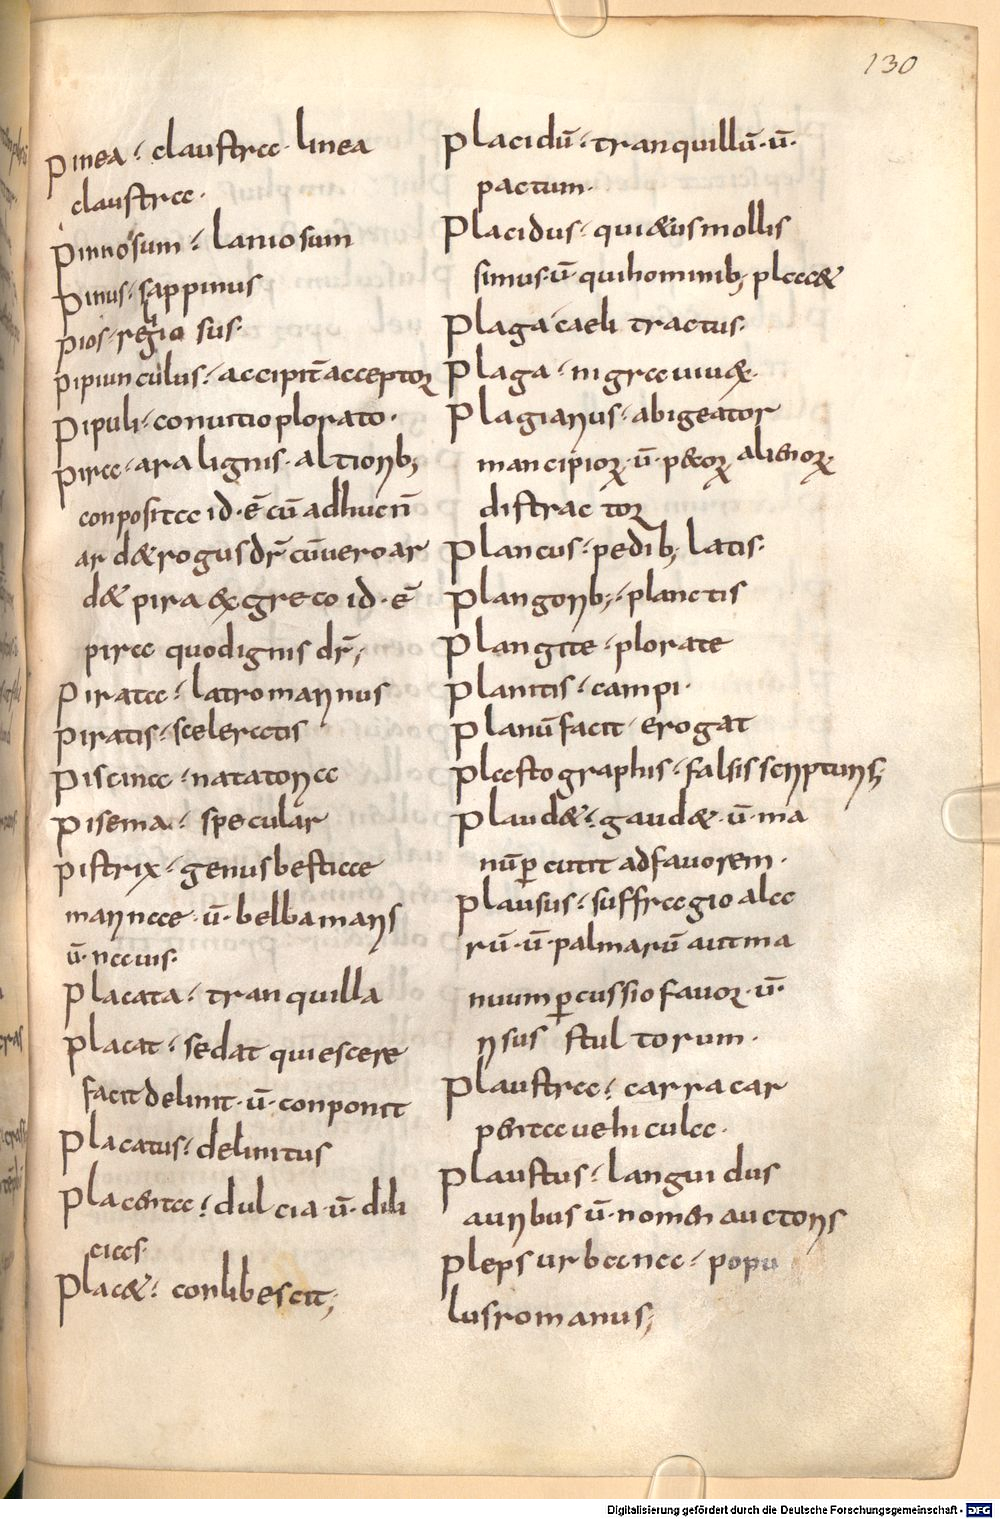 130
Pinea : claustra · linea
claustra ·
Pinnosum : laniosum
Pinus : sappinus
pios · regio sus ·
pipiunculus : accipit̄ acceptor
Pipuli : conuitio plorato ·
Pira : ara lignis · altiorib;
conposita id · ē cū adhuc n̄
ardet rogus dr̄ cū uero ar
det pira ex greco id · ē
pira quod ignis dr̄;
Piratae : latro marinus
Piratis : sceleratis
Piscina : natatoria
Pisema : specular
Pistrix : genus bestiae
marinae · ū · belba maris
ū · nauis ·
Placata : tranquilla
Placat : sedat quiescere
facit delinit · ū · conponit
Placatus : delinitus
Placenta : dulcia · ū · dili
cias ·
Placet : conlibescit;
Placidū : tranquillū · ū ·
pactum ·
Placidus : quietus mollis
simus · ū · qui hominib; placet
Plaga caeli tractus ·
Plaga : nigra uiuax ·
Plagiarius : abigeator
mancipioꝝ · ū · pecoꝝ alienoꝝ
distractor
Plancus : pedib; latis ·
Plangorib; : planctis
Plangite : plorate
Planitis : campi ·
Planū facit erogat
Plastographis : falsis scripturis;
Plaudet : gaudet · ū · ma
nū ꝑcutit ad fauorem ·
Plausus : suffragio ala
rū · ū · palmarū aut ma
nuum ꝑcussio fauor · ū ·
risus stultorum ·
Plaustra : carra car
penta uehicula ·
Plaustus : languidus
auribus ū · nomen auctoris
Pleps urbana : popu
lus romanus;
Digitalisierung gefördert durch die Deutsche Forschungsgemeinschaft - DFG